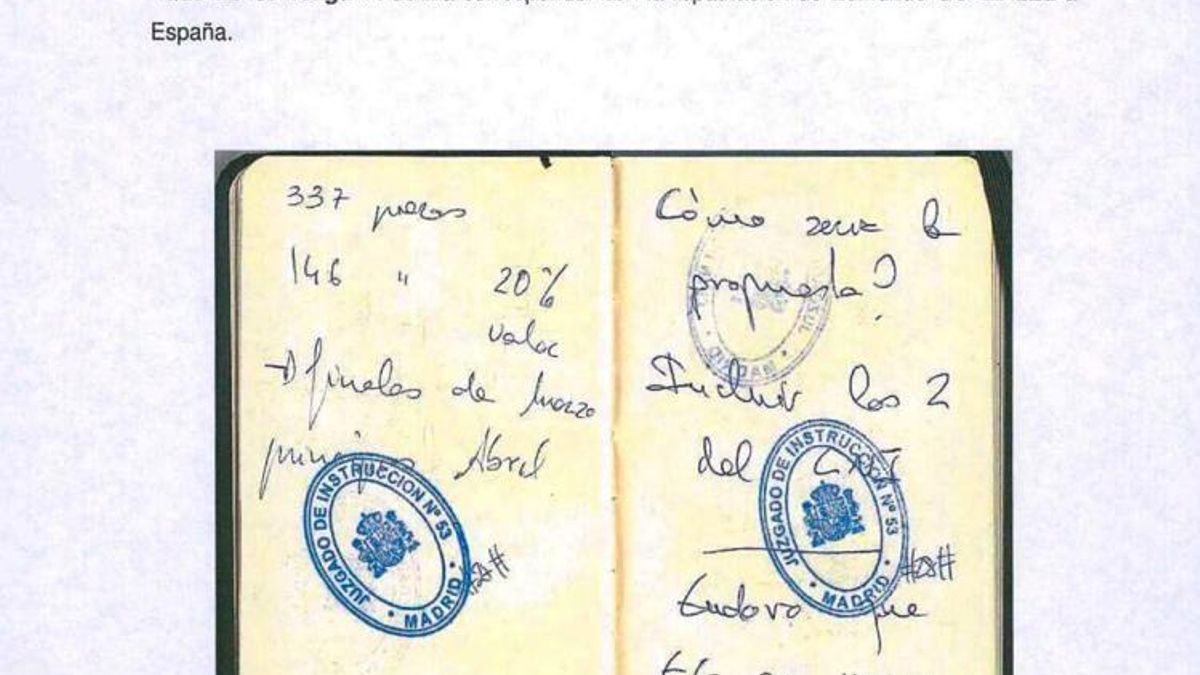 España.
337 piezas
146 " 20%
valor
finales de Marzo
principios Abril
JUZGADO DE INSTRUCCION Nº 53
MADRID
Cómo sería la
propuesta?
MADRID
Incluir los 2
del
JUZGADO DE INSTRUCCION Nº 53
MADRID
Eudoro que